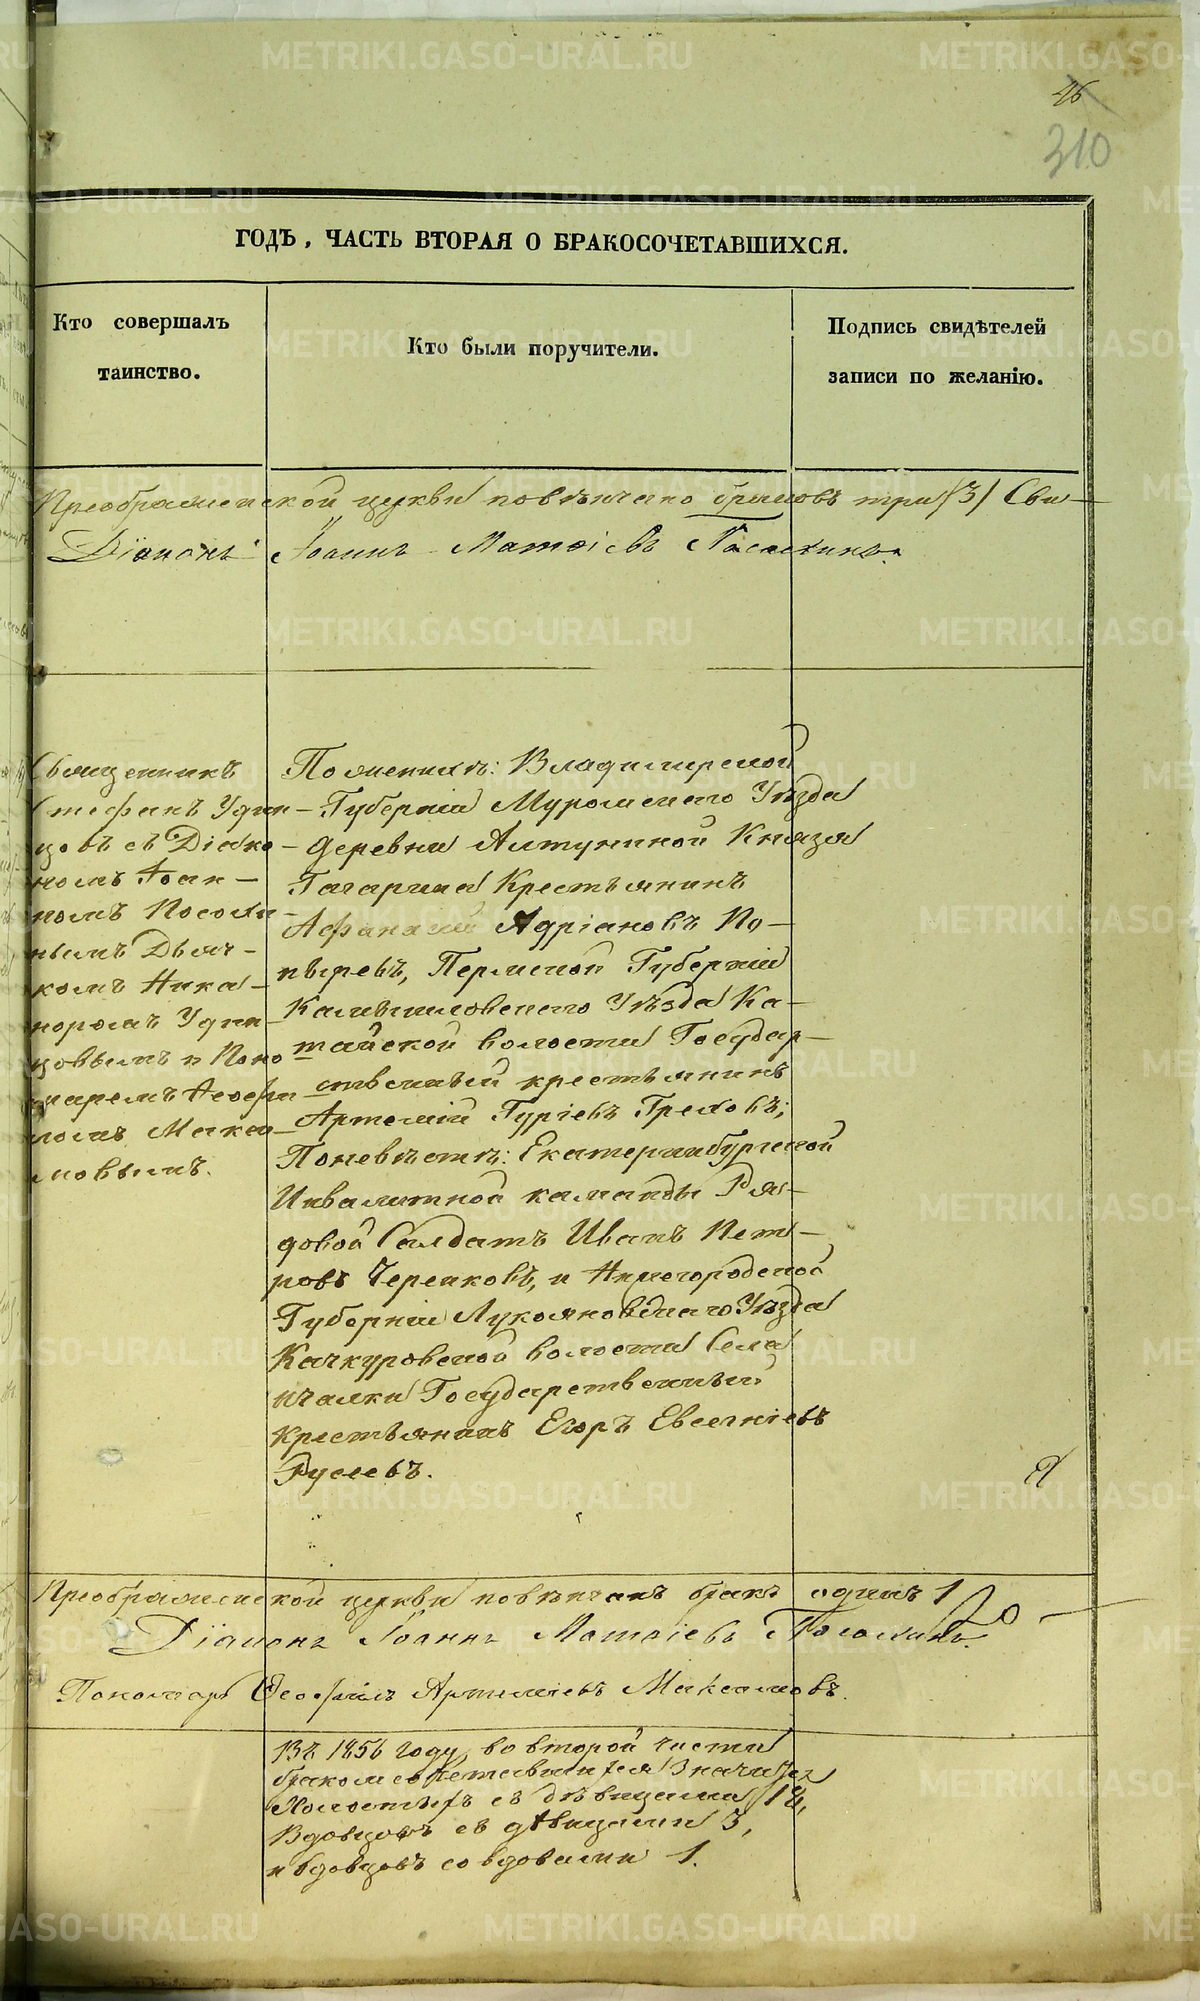 46
310
ГОДЪ, ЧАСТЬ ВТОРАЯ О БРАКОСОЧЕТАВШИХСЯ.
Кто совершалъ
таинство.
Кто были поручители.
Подпись свидѣтелей
записи по желанію.
Преображенской церкви повѣнчано браковъ три (3) Сви-
Діаконъ Іоаннъ Матѳіевъ Посохинъ.
Священникъ
Стефанъ Удин-
цовъ съ Діако-
номъ Іоан-
номъ Посохи-
нымъ Дьяч-
комъ Ника-
норомъ Удин-
цовымъ и Поно-
маремъ Ѳеофи-
ломъ Макса-
мовымъ.
Поженихѣ: Владимирской
Губерніи Муромскаго Уѣзда
деревни Алтуниной Князя
Гагарина Крестьянинъ
Афанасій Адріановъ По-
пыревъ, Пермской Губерніи
Камышловскаго Уѣзда Ка-
тайской волости Государ-
ственный крестьянинъ
Артемій Гуріевъ Греховъ;
Поневѣстѣ: Екатеринбургской
Инвалитной каманды Ря-
довой Салдатъ Иванъ Пет-
ровъ Черепковъ, и Нижегородской
Губерніи Лукояновскаго Уѣзда
Качкуровской волости Села
ичалки Государственный
Крестьянинъ Егоръ Евгеніевъ
Руслевъ.
Преображенской церкви повѣнчанъ бракъ одинъ 1
Діаконъ Іоаннъ Матѳіевъ Посохинъ.
Пономарь Ѳеофилъ Артеміевъ Максамовъ.
Въ 1856 году, во второй части
бракомсочетавшихся Значится
Холостыхъ съ дѣвицами 18,
Вдовцовъ съ дѣвицами 3,
и вдовцовъ со вдовами 1.
METRIKI.GASO-URAL.RU